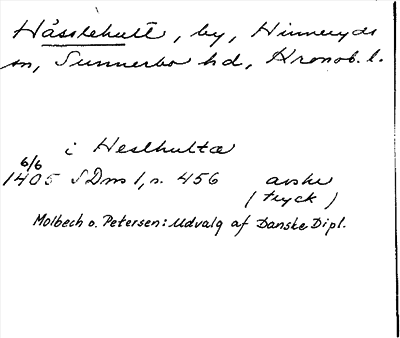 Hässlehult, by, Hinneryds
sn, Sunnerbo hd, Kronob. l.
i Heslhultæ
6/6
1405 SDns 1, s. 456 avskr
(tryck)
Molbech o. Petersen: Udvalg af Danske Dipl.